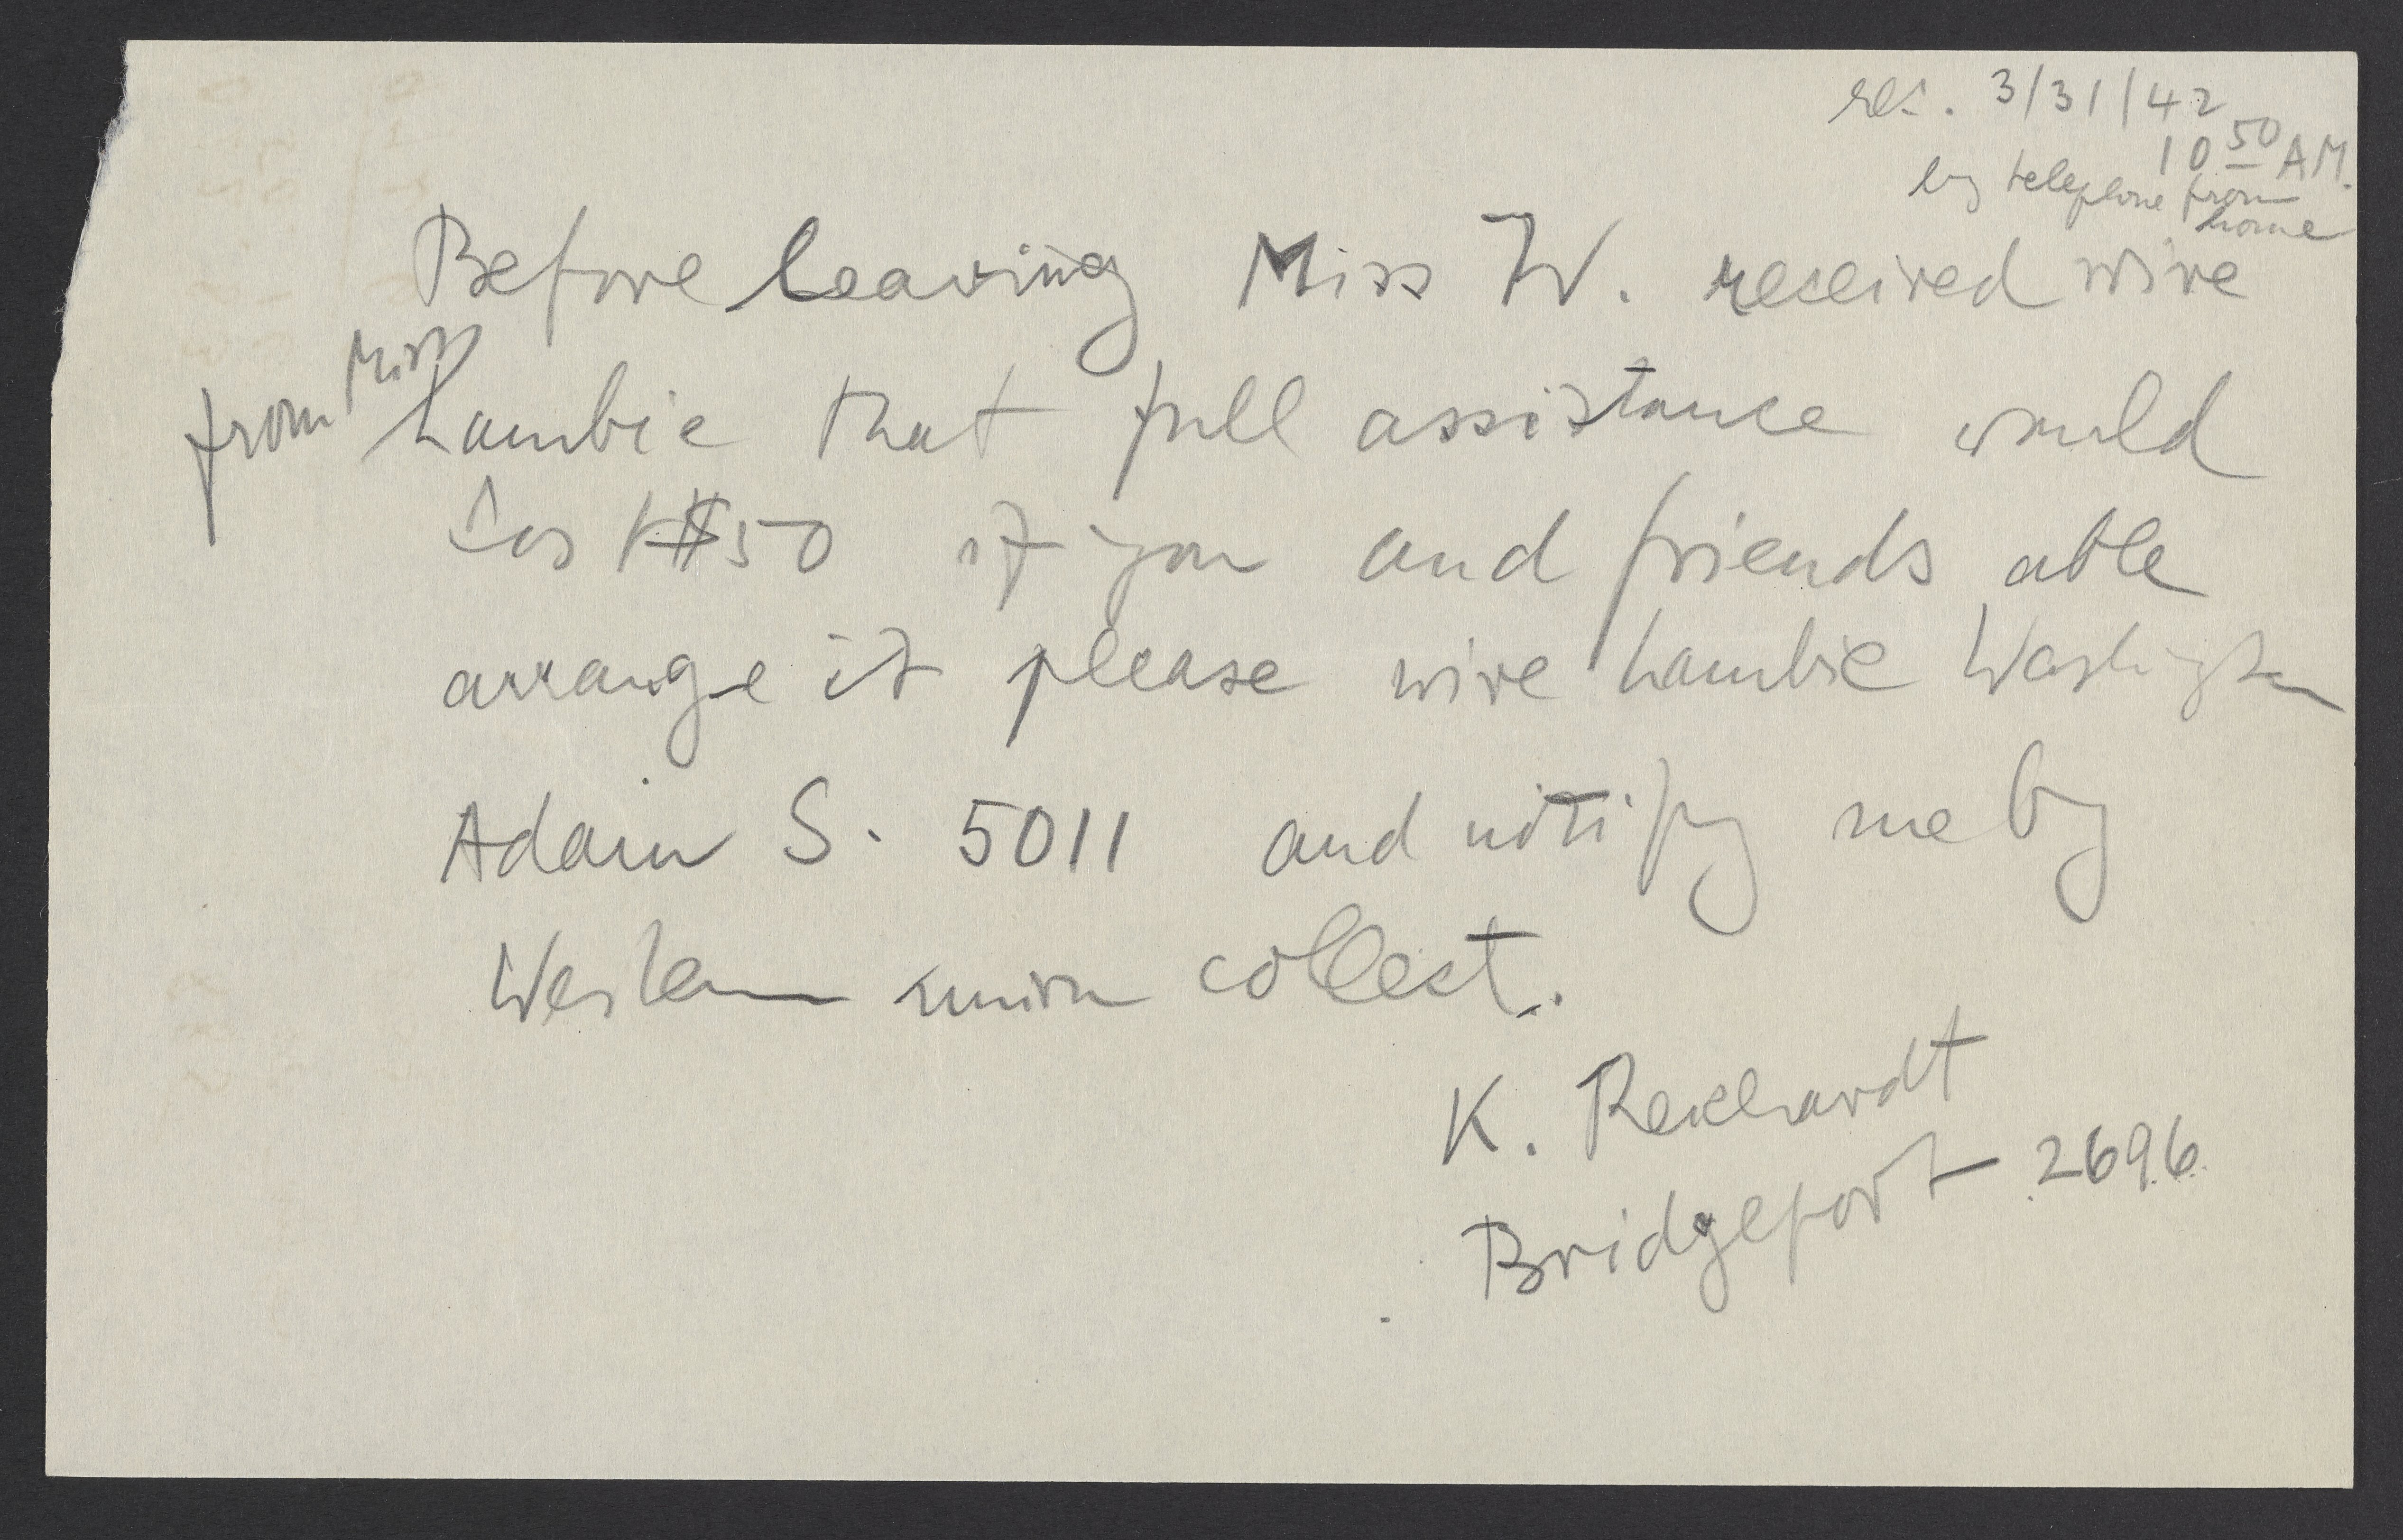 rec. 3/31/42
10 50 AM.
by telephone from
home
Before leaving Miss W. received wire
from Miss Lambie that full assistance would
cost $50 if you and friends able
arrange it please wire Lambie Washington
Adam S. 5011 and notify me by
Western union collect.
K. Reichardt
Bridgeport 2696